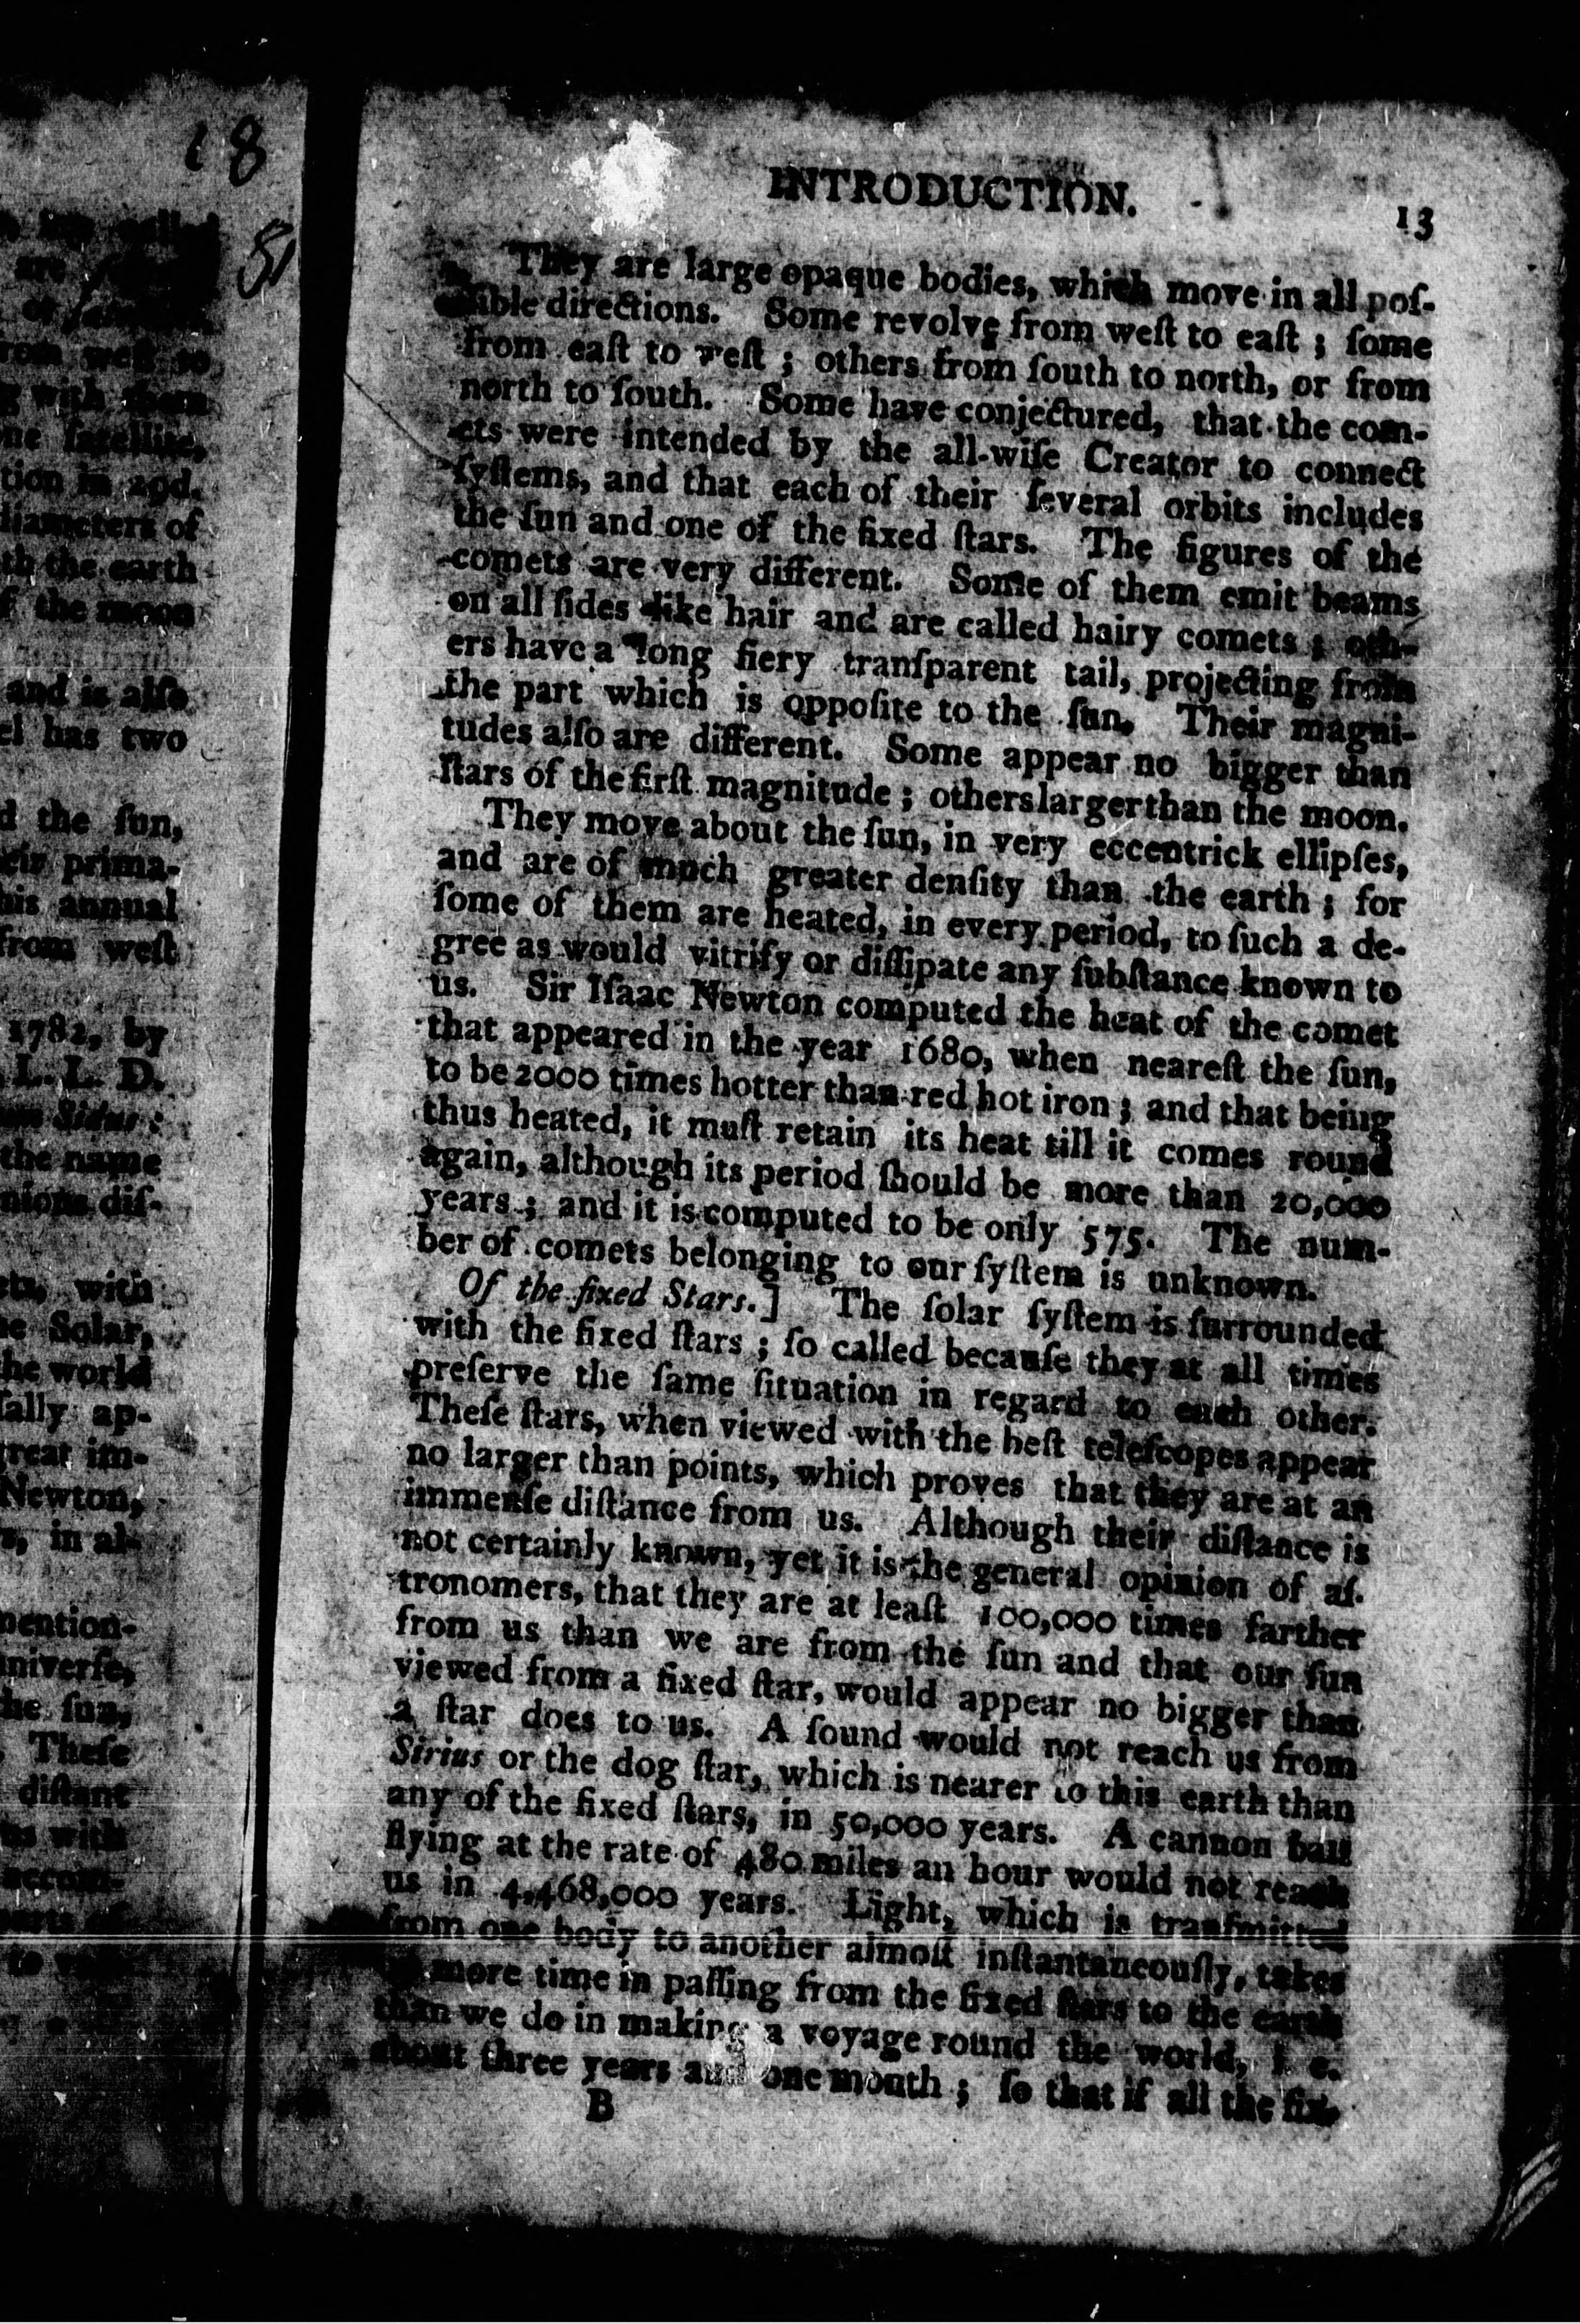 18
81
are
of
rom west to
g with them
ne ſatellite,
tion in 29d.
diameters of
th the earth
f the moon
and is alſo
el has two
d the ſun,
eir prima-
his annual
from weſt
1782, by
L. L. D.
Sidus :
the name
nions diſ-
ets, with
he Solar,
the world
ſally ap-
great im-
Newton,
s, in al-
mention-
niverſe,
he ſun,
Theſe
diſtant
us with
accom-
parts of
to
INTRODUCTION. 13
They are large opaque bodies, which move in all poſ-
ſible directions. Some revolve from weſt to eaſt ; ſome
from eaſt to weſt ; others from ſouth to north, or from
north to ſouth. Some have conjectured, that the com-
ets were intended by the all-wiſe Creator to connect
ſyſtems, and that each of their ſeveral orbits includes
the ſun and one of the fixed ſtars. The figures of the
comets are very different. Some of them emit beams
on all ſides like hair and are called hairy comets ; oth-
ers have a long fiery tranſparent tail, projecting from
the part which is oppoſite to the ſun. Their magni-
tudes alſo are different. Some appear no bigger than
ſtars of the firſt magnitude ; others larger than the moon.
They move about the ſun, in very eccentrick ellipſes,
and are of much greater denſity than the earth ; for
ſome of them are heated, in every period, to ſuch a de-
gree as would vitrify or diſſipate any ſubſtance known to
us. Sir Iſaac Newton computed the heat of the comet
that appeared in the year 1680, when neareſt the ſun,
to be 2000 times hotter than red hot iron ; and that being
thus heated, it muſt retain its heat till it comes round
again, although its period ſhould be more than 20,000
years ; and it is computed to be only 575. The num-
ber of comets belonging to our ſyſtem is unknown.
Of the fixed Stars.] The ſolar ſyſtem is ſurrounded
with the fixed ſtars ; ſo called becauſe they at all times
preſerve the ſame ſituation in regard to each other.
Theſe ſtars, when viewed with the beſt teleſcopes appear
no larger than points, which proves that they are at an
immenſe diſtance from us. Although their diſtance is
not certainly known, yet it is the general opinion of aſ-
tronomers, that they are at leaſt 100,000 times farther
from us than we are from the ſun and that our ſun
viewed from a fixed ſtar, would appear no bigger than
a ſtar does to us. A ſound would not reach us from
Sirius or the dog ſtar, which is nearer to this earth than
any of the fixed ſtars, in 50,000 years. A cannon ball
flying at the rate of 480 miles an hour would not reach
us in 4,468,000 years. Light, which is tranſmitted
from one body to another almoſt inſtantaneouſly, takes
more time in paſſing from the fixed ſtars to the earth
than we do in making a voyage round the world, i. e.
about three years and one month ; ſo that if all the fix-
B